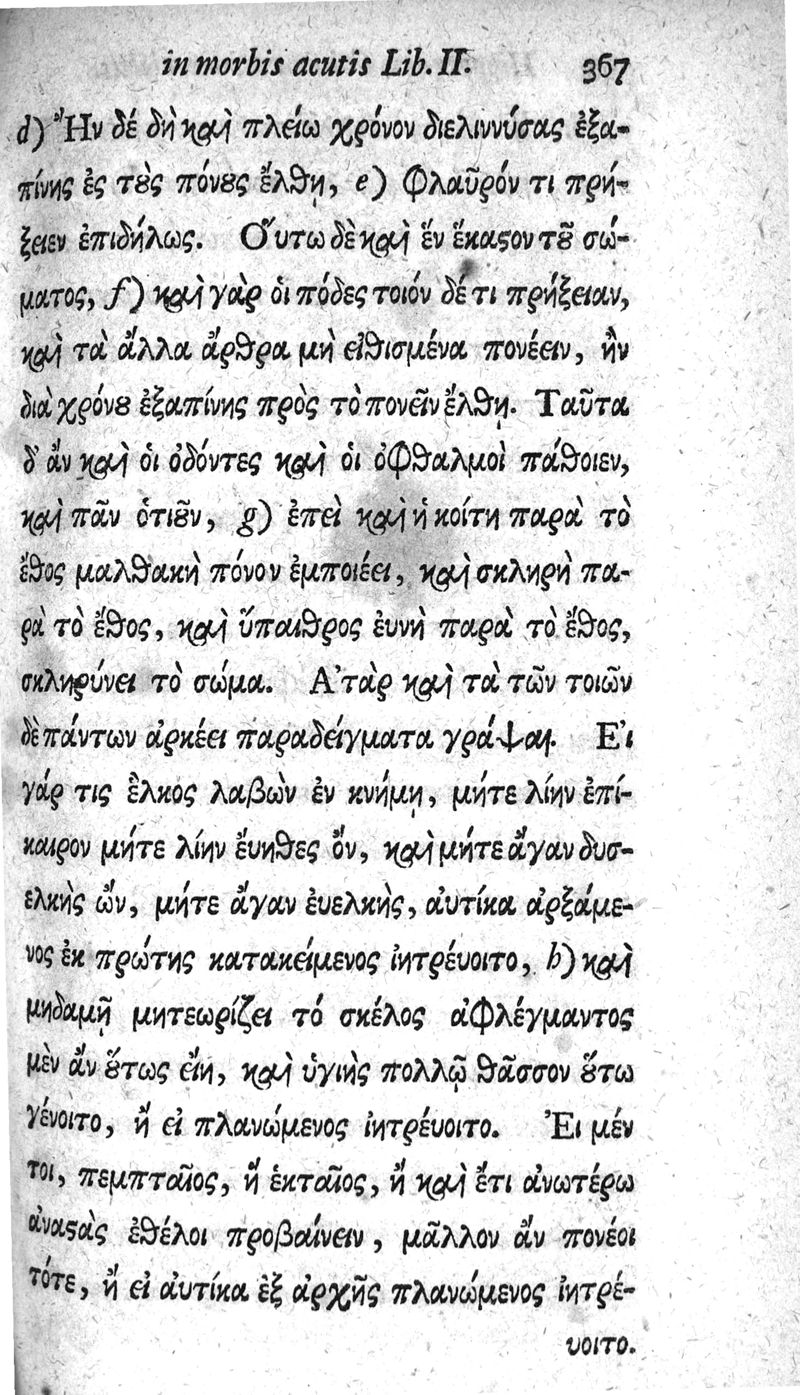 in morbis acutis Lib. II. 367
d) Ἢν δέ δὴ καὶ πλείω χρόνον διελιννύσας ἐξα-
πίνης ἐς τοὺς πόνους ἔλθῃ, e) φλαῦρόν τι πρή-
ξειεν ἐπιδήλως. Οὕτω δὲ καὶ ἕν ἕκαστον τοῦ σώ-
ματος, f) καὶ γὰρ οἱ πόδες τοιόν δέ τι πρήξειαν,
καὶ τὰ ἄλλα ἄρθρα μὴ εἰθισμένα πονέειν, ἢν
διὰ χρόνου ἐξαπίνης πρὸς τὸ πονεῖν ἔλθῃ. Ταῦτα
δ' ἄν καὶ οἱ ὀδόντες καὶ οἱ ὀφθαλμοὶ πάθοιεν,
καὶ πᾶν ὁτιοῦν, g) ἐπεὶ καὶ ἡ κοίτη παρὰ τὸ
ἔθος μαλθακὴ πόνον ἐμποιέει, καὶ σκληρὴ πα-
ρὰ τὸ ἔθος, καὶ ὕπαιθρος ἐυνὴ παρὰ τὸ ἔθος,
σκληρύνει τὸ σώμα. Ἀτὰρ καὶ τὰ τῶν τοιῶν
δὲ πάντων ἀρκέει παραδείγματα γράψαι. Εἰ
γάρ τις ἓλκος λαβὼν ἐν κνήμῃ, μήτε λίην ἐπί-
καιρον μήτε λίην ἔυηθες ὄν, καὶ μήτε ἄγαν δυσ-
ελκὴς ὤν, μήτε ἄγαν ἐυελκὴς, ἀυτίκα ἀρξάμε-
νος ἐκ πρώτης κατακείμενος ἰητρέυοιτο, h) καὶ
μηδαμῆ μητεωρίζει τό σκέλος ἀφλέγμαντος
μὲν ἄν οὕτως εἴη, καὶ ὑγιὴς πολλῷ θᾶσσον οὕτω
γένοιτο, ἤ εἰ πλανώμενος ἰητρέυοιτο. Ἐι μέν
τοι, πεμπταῖος, ἤ ἑκταῖος, ἤ καὶ ἔτι ἀνωτέρω
ἀναστὰς ἐθέλοι προβαίνειν, μᾶλλον ἄν πονέοι
τότε, ἤ εἰ ἀυτίκα ἐξ ἀρχῆς πλανώμενος ἰητρέ-
υοιτο.